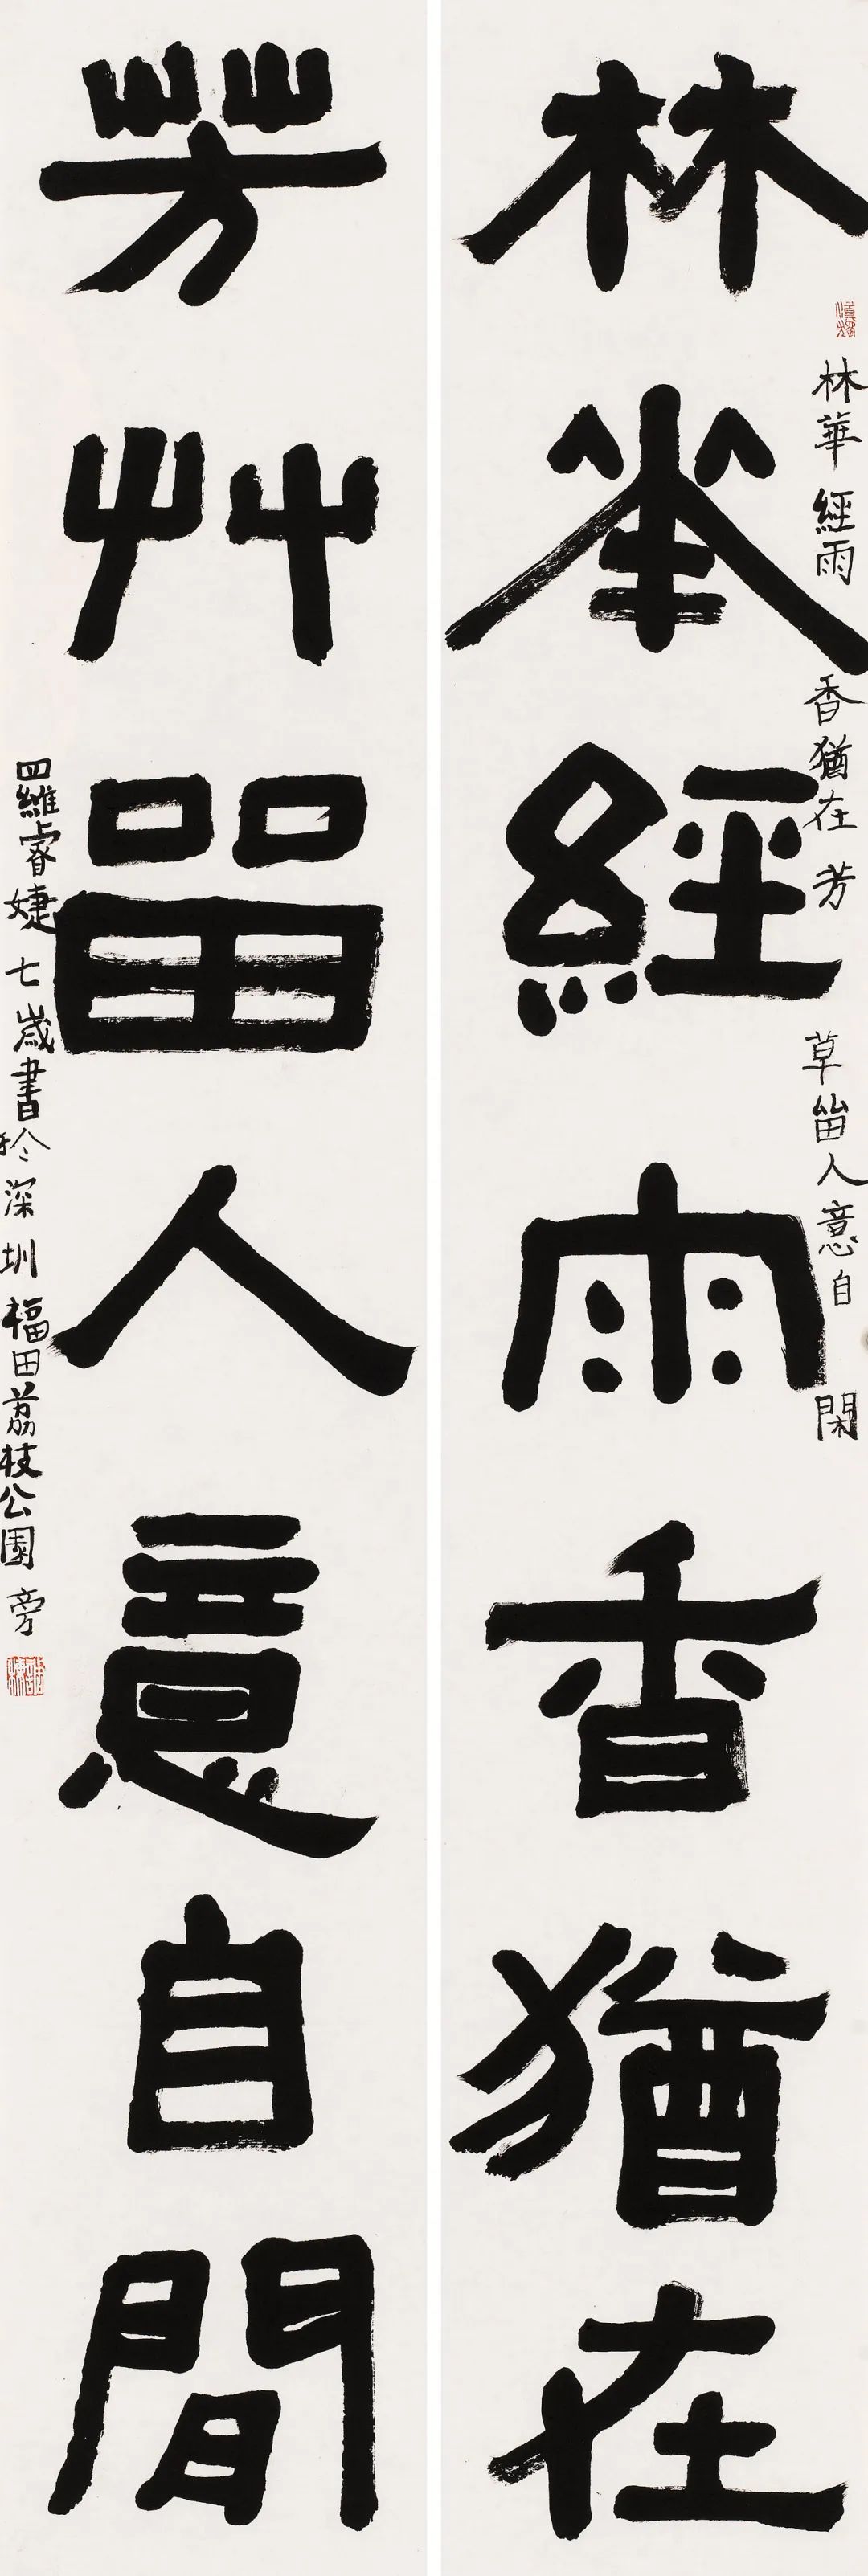 林華經雨香猶在
林華經雨香猶在芳草畱人意自閑
芳艸畱人意自閒
羅睿婕七歲書於深圳福田荔枝公園旁